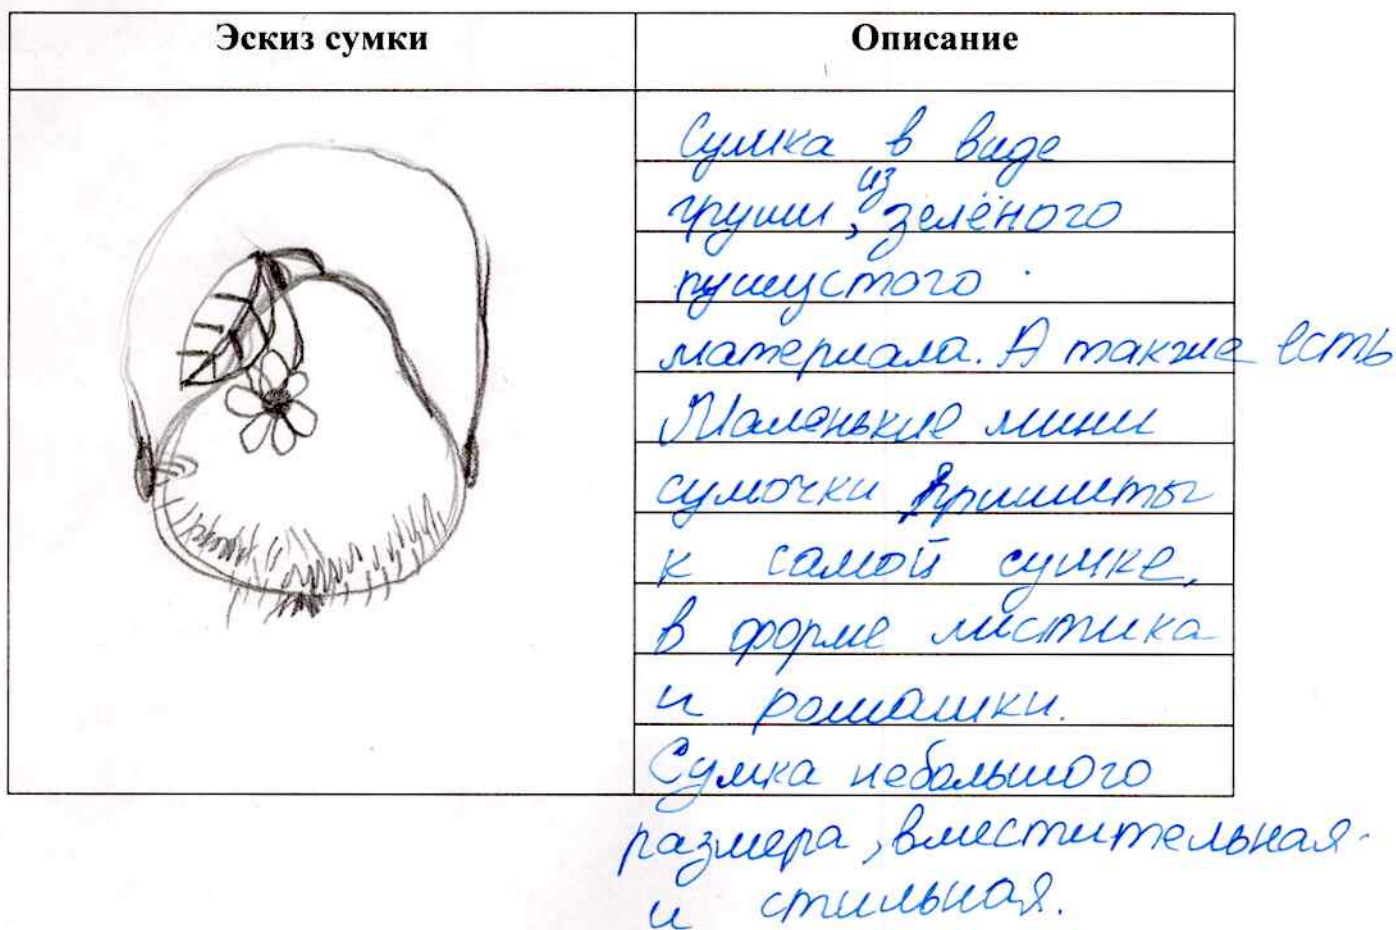 Эскиз сумки
Описание
Сумка в виде
груши, из зелёного
пушустого
материала. А также есть
Маленькие мини
сумочки пришиты
к самой сумке,
в форме листика
и ромашки.
Сумка небольшого
размера, вместительная
и стильная.